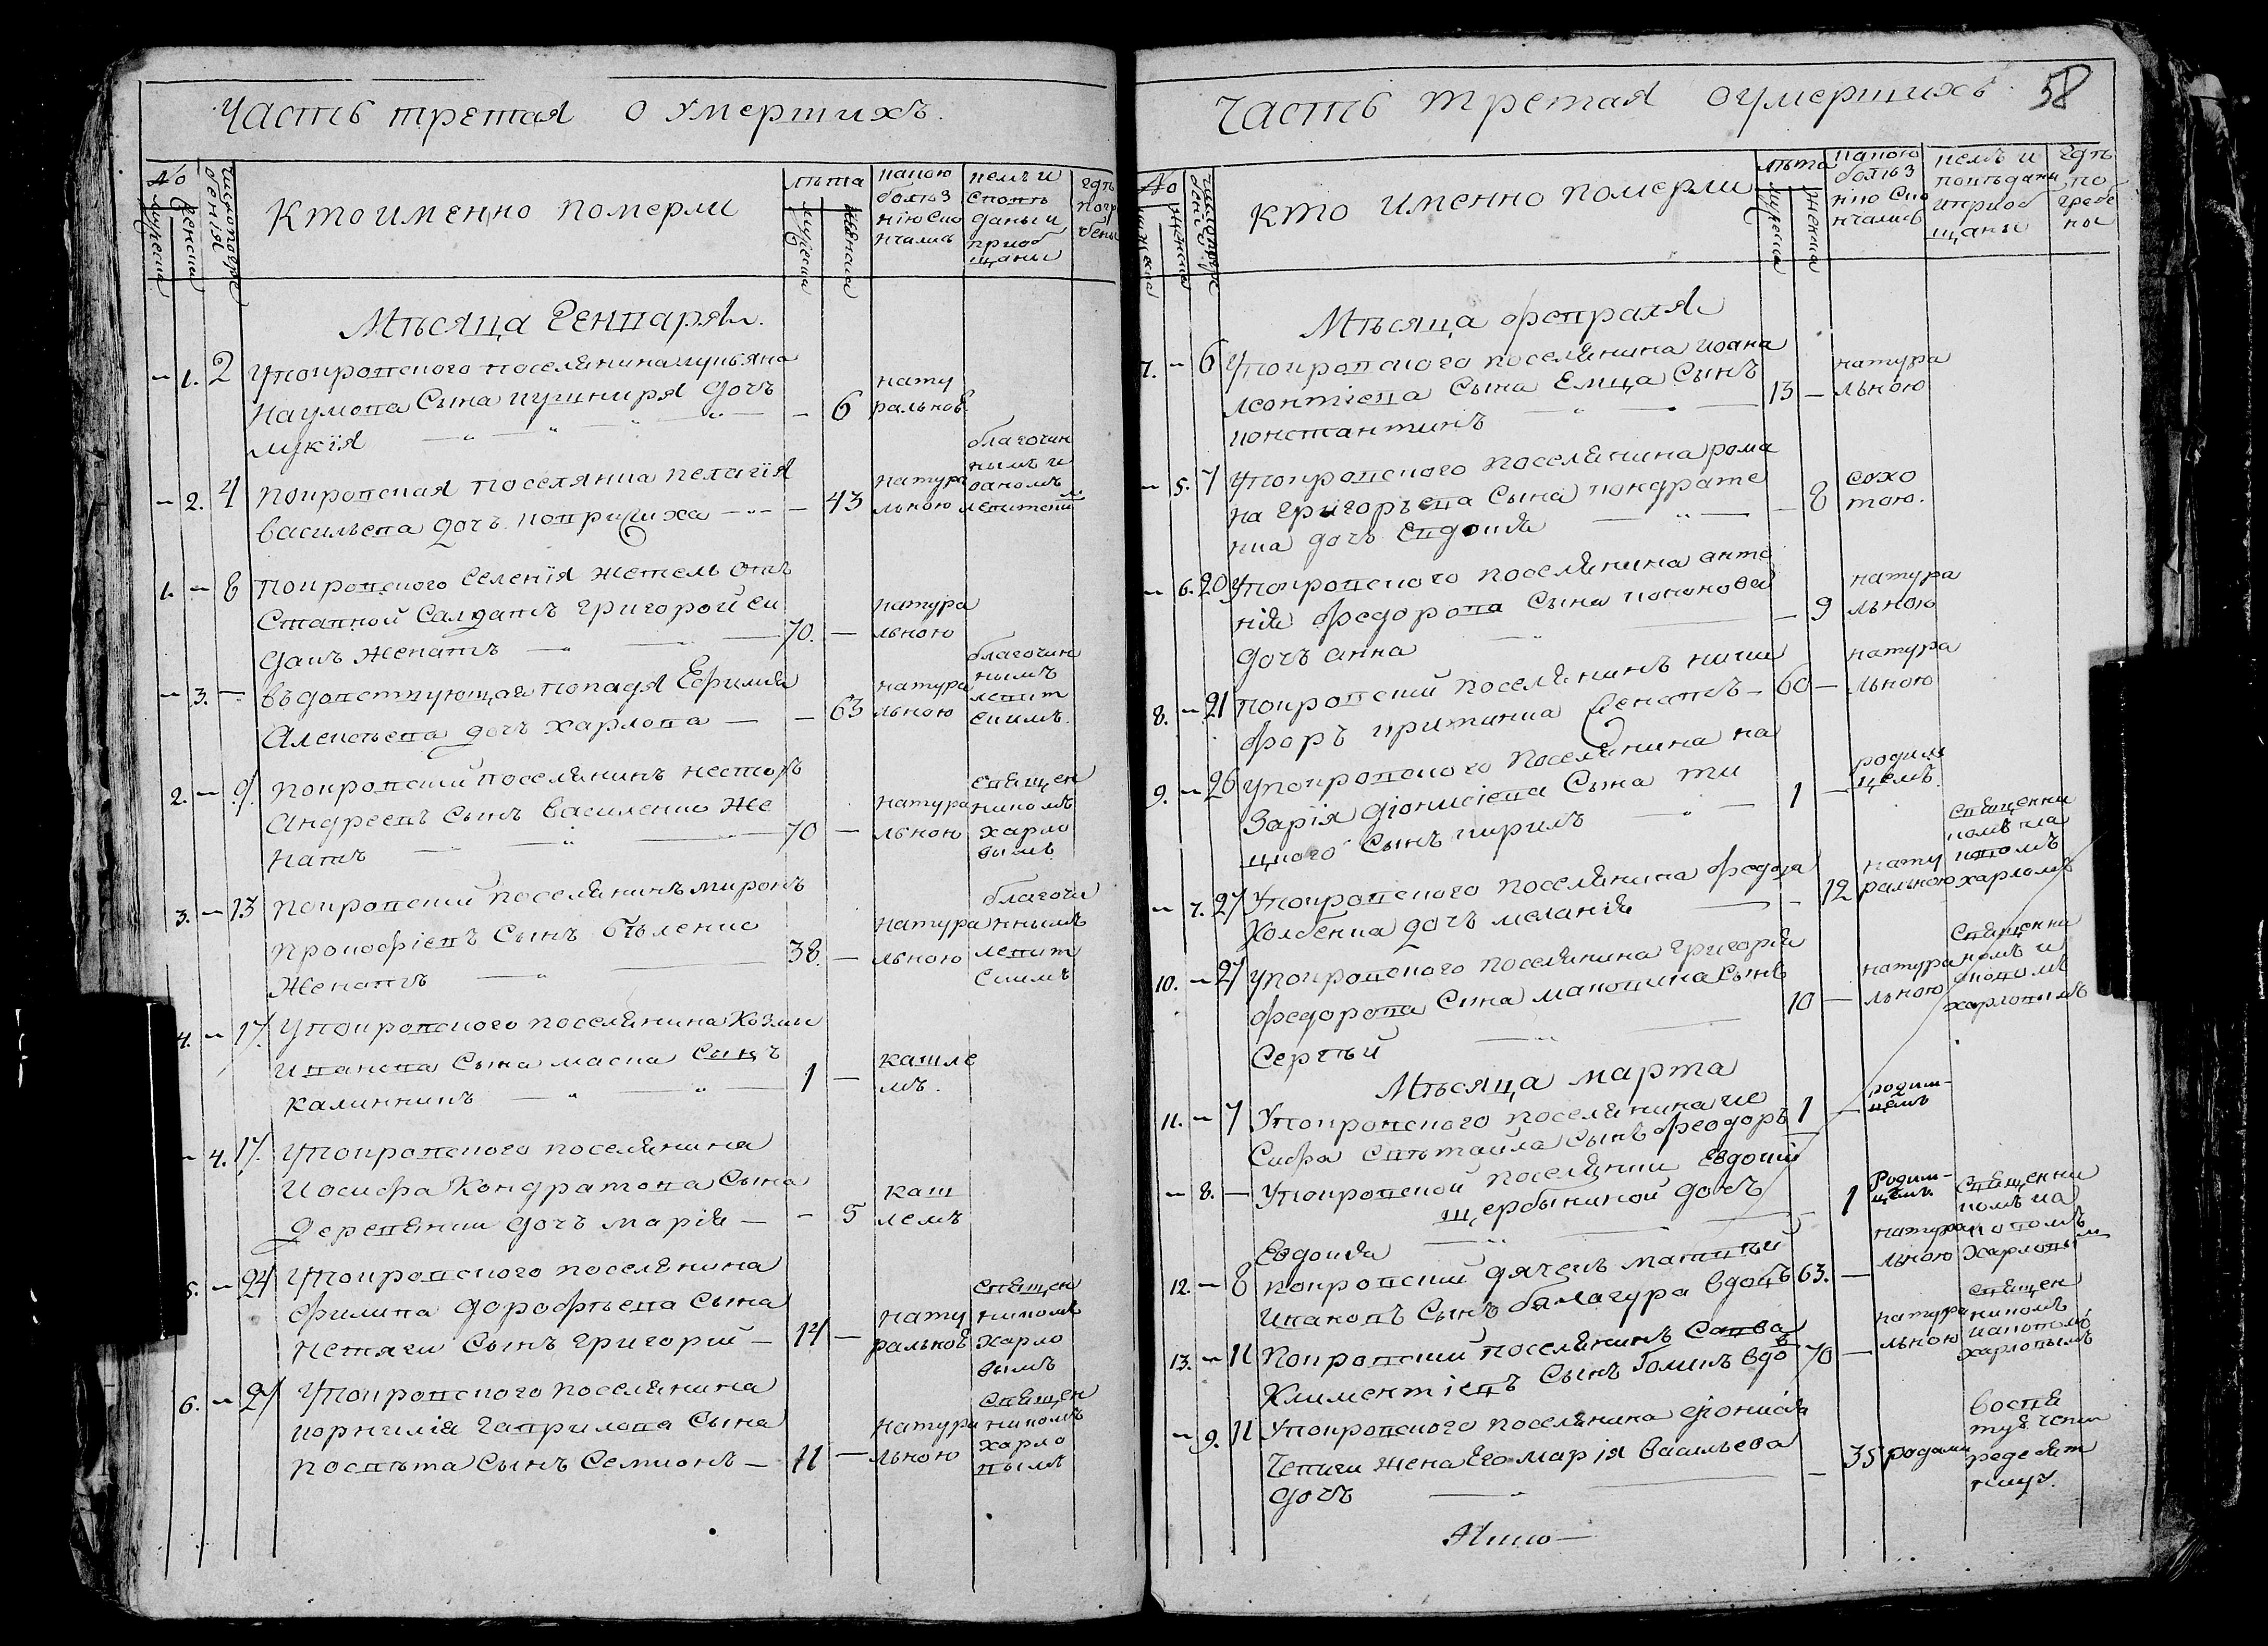 Часть третая о умершихъ.
No
мужеска
женска
число погребенія
Кто именно померли
лѣта
мужеска
женска
какою
болѣз
нію ско
нчались
кемъ и
споѣв
даны и
приоб
щаны
гдѣ
погр
ебены
Мѣсяца Генваря
1. 2 У покровского поселянина
Наумова Сына кушниря дочъ
лукія
6
нату
ральною
2. 4 покровская поселянка пелагія
васильева дочъ
43
натура
льною
благочин
нымъ и
1. 8 покровского селенія житель отъ
ставной Салдатъ григорой си
дакъ женатъ
70.
натура
льною
3. въдовствующая попадя Ефимія
Алексѣева дочъ харлова
63
натура
льною
благочин
нымъ
левит
скимъ.
2. 9. покровский поселянинъ несторъ
Андреевъ сынъ василенко же
натъ
70
натура
льною
священ
никомъ
харло
вымъ
3. 13 покровский поселянинъ миронъ
прокофіевъ сынъ бѣленко
женатъ
38.
натура
льною
благочи
ннымъ
левит
скимъ
4. 17. У покровского поселянина Козми
иванова сына маска сынъ
калинникъ
1
кашле
мъ.
4. 17. У покровского поселянина
иосифа Кондратова сына
деревянки дочъ марія
5
каш
лемъ
5. 24 У покровского поселянина
филипа дорофѣева сына
нетяги сынъ григорий
14
нату
ральною
священ
никомъ
харло
вымъ
6. 27 У покровского поселянина
корнилія гаврилова сына
посвѣта сынъ семионъ
11
натура
льною
священ
никомъ
харло
вымъ
Часть третая о умершихъ
58
No
мужеска
женска
число погребенія
кто именно померли
лѣта
мужеска
женска
какою
болѣз
нію ско
нчались
кемъ и
поѣвдани
и приоб
щаны
гдѣ
по
гребе
ны
Мѣсяца февраля
7. 6 У покровского поселянина иоана
леонтіева сына Емца сынъ
константинъ
13
натура
льною
5. 7 У покровского поселянина рома
на григорьева сына кондрате
нка дочъ Евдокія
8
сохо
тою.
6. 20 У покровского поселянина анто
нія федорова сына кононова
дочъ анна
9
натура
льною
8. 21 покровский поселянинъ ники
форъ притинка женатъ
60
натура
льною
9. 26 У покровского поселянина на
зарія діонисіева сына ти
цкого сынъ кирилъ
1
родим
цемъ.
7. 27 У покровского поселянина федора
холбенка дочъ меланія
12
нату
ральною
священни
комъ иа
ковомъ
харловимъ
10. 27 У покровского поселянина григорія
федорова сина макошина сынъ
сергѣй
10
натура
льною
священни
комъ и
аковомъ
харловымъ
Мѣсяца марта
11. 7 У покровского поселянина ио
сифа свѣтайла сынъ феодоръ
1
родим-
цемъ
8. У покровской поселянки Евдокіи
щербыниной дочъ
Евдокія
1
Родим-
цемъ.
12. 8 покровский дячекъ матвѣй
иваковъ сынъ бялагура вдовъ
63.
натура
льною
священни
комъ иа
ковомъ
харловымъ
13. 11 Покровский поселянинъ савва
Климентіевъ сынъ Гомикъ вдовъ
70
натура
льною
священ
никомъ
иаковомъ
харловымъ
9. 11 У покровского поселянина діонисія
Чепиги жена Его марія васильева
дочъ
35
родами